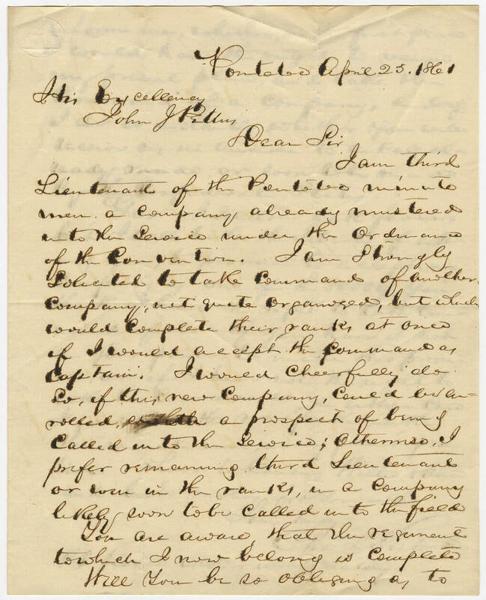 Pontotoc April 25, 1861
His Excellency
John J Pettus
Dear Sir
I am third
Lieutenant of the Pontotoc minute
men a company already mustered
into the Service under the Ordinance
of the Convention. I am Strongly
Solicited to take Command of another
Company, not quite organized, but which
would complete their ranks at once
if I would accept the command as
Captain. I would cheerfully do
So, if this new Company, could be en-
rolled, with a prospect of being
Called into the Service; Otherwise, I
prefer remaining third Lieutenant
or even in the ranks, in a company
likely soon to be called into the field
You are aware, that the regiment
to which I now belong is complete
Will You be so obliging as to